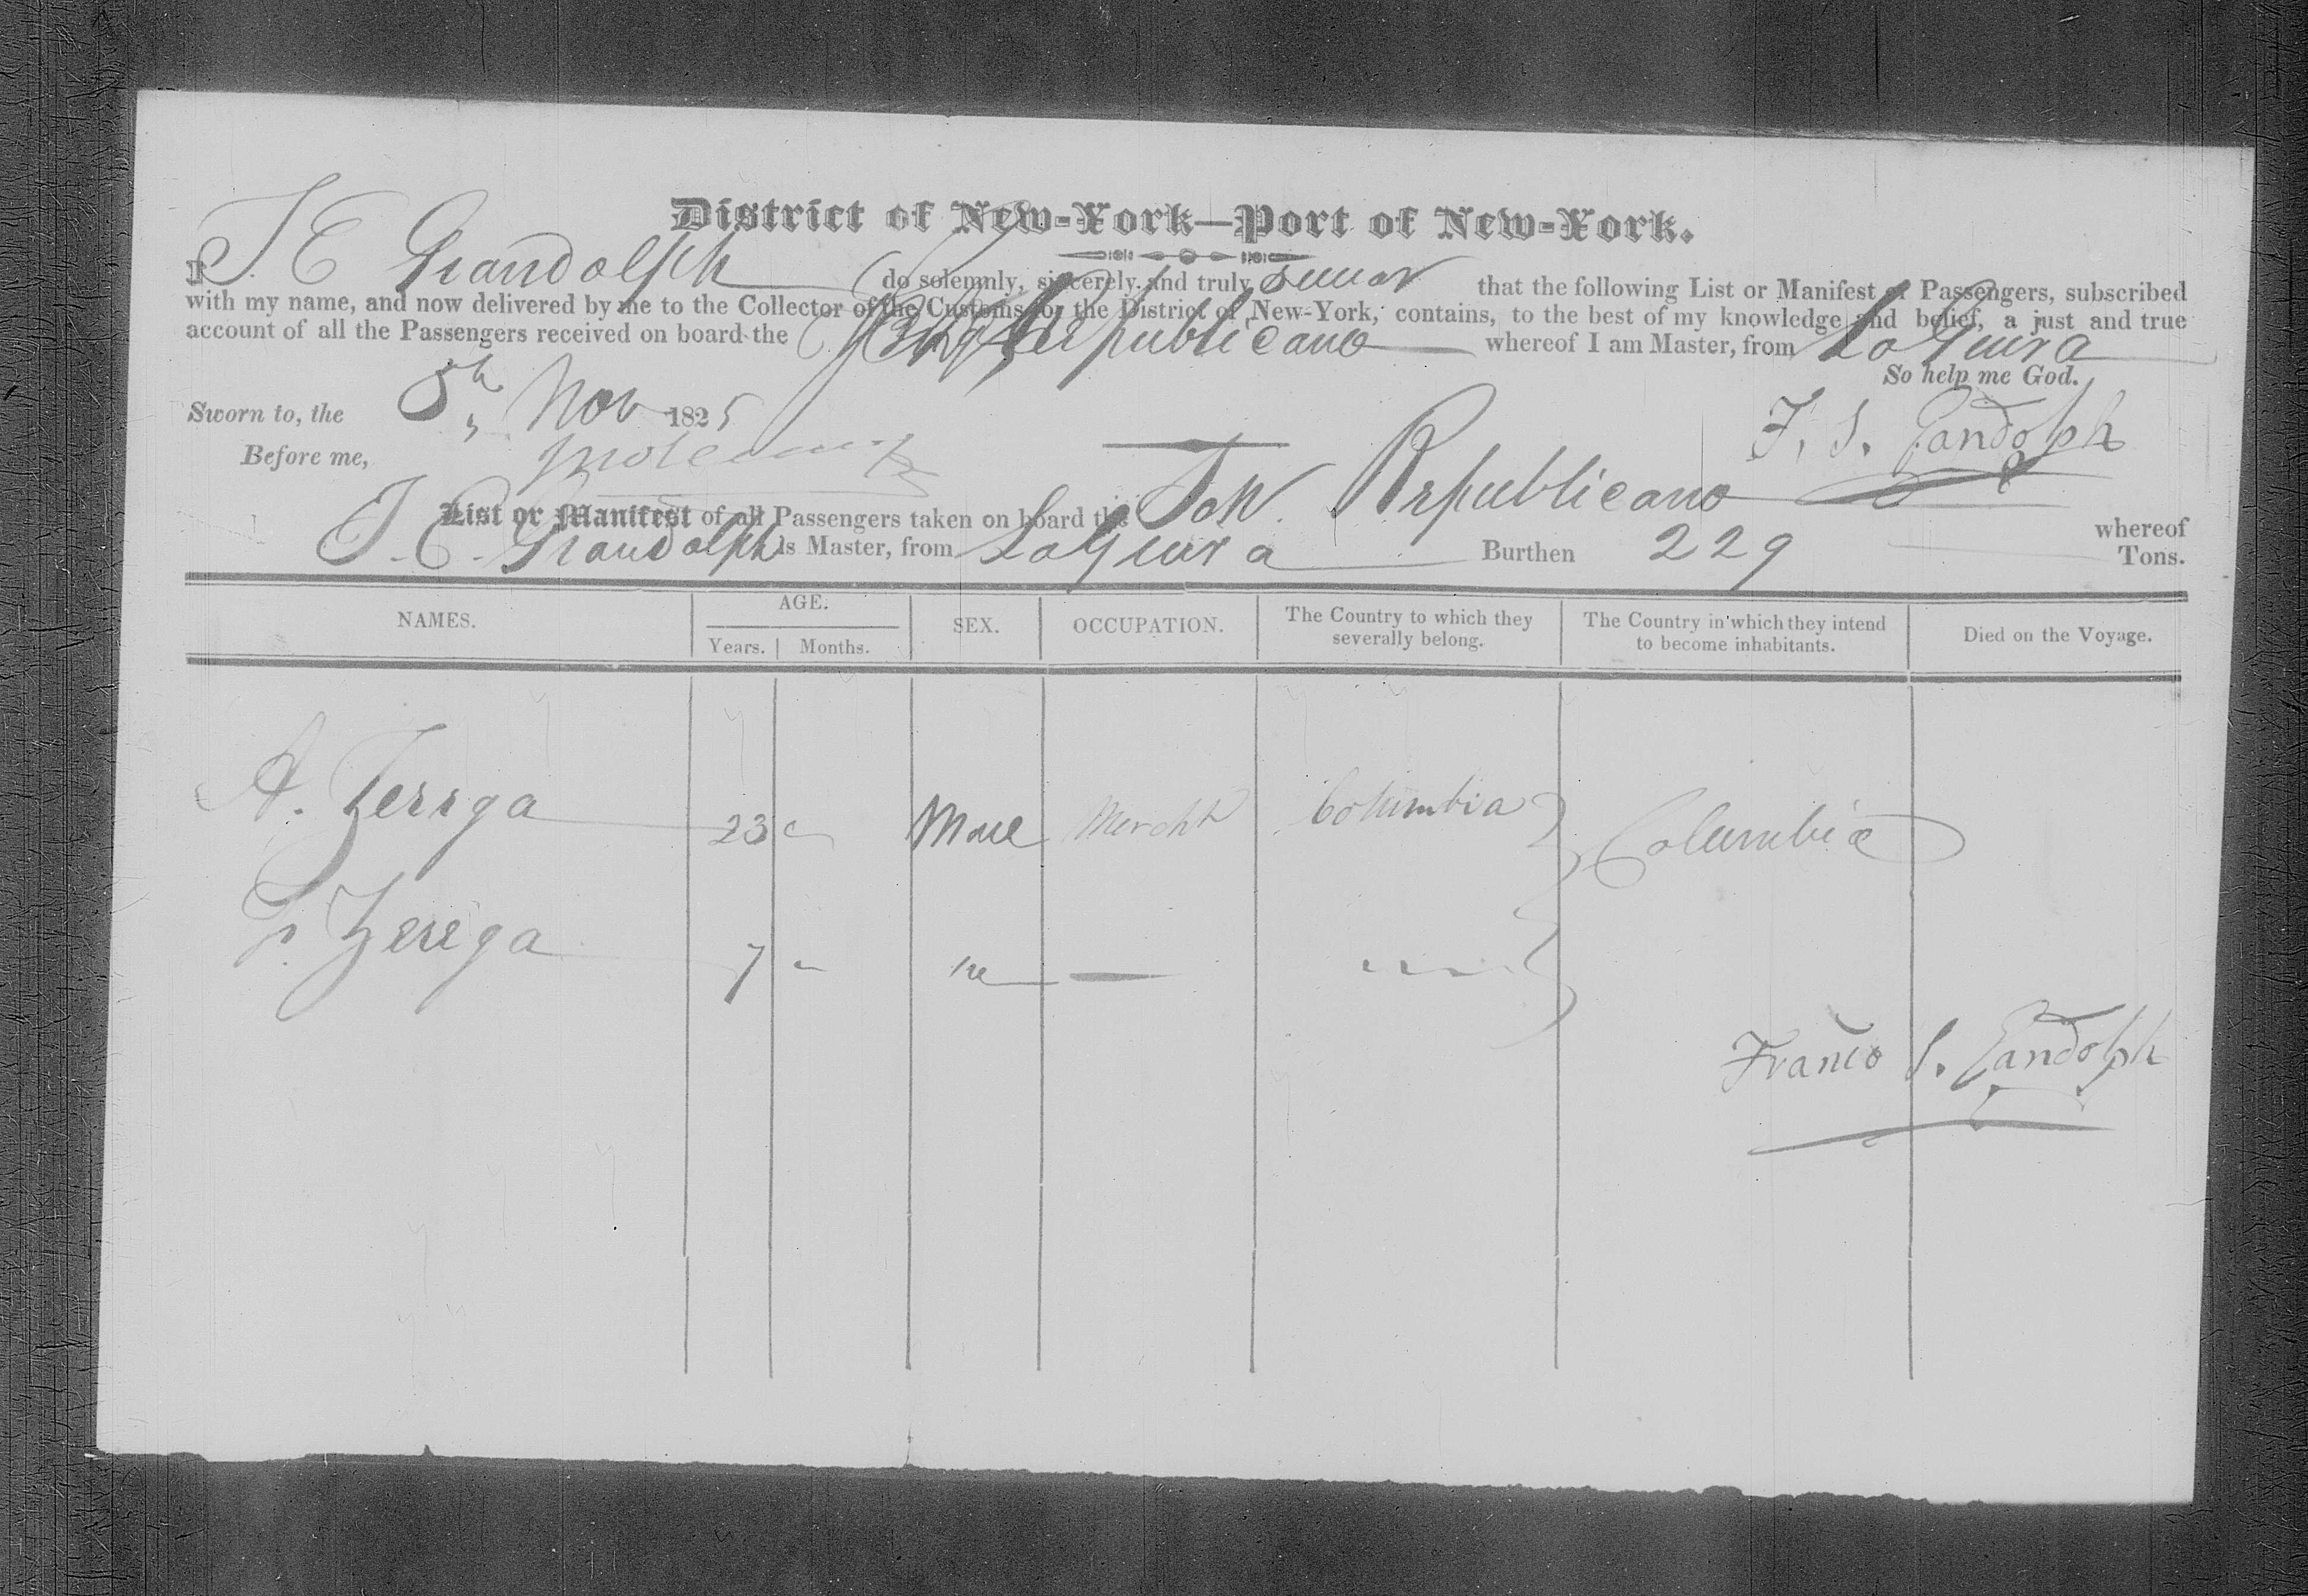 District of New-York—Port of New-York.
I do solemnly, sincerely and truly swear that the following List or Manifest of Passengers, subscribed
with my name, and now delivered by me to the Collector of the Customs for the District of New-York, contains, to the best of my knowledge and belief, a just and true
account of all the Passengers received on board the Republicano whereof I am Master, from LaGuira
So help me God.
Sworn to, the 5th Nov 1825
F. S. Randolph
Before me,
List or Manifest of all Passengers taken on board the Republicano whereof
is Master, from LaGuira Burthen 229 Tons.
NAMES. AGE. Years. Months. SEX. OCCUPATION. The Country to which they severally belong. The Country in which they intend to become inhabitants. Died on the Voyage.
A. Zerega 23 Male Mercht Columbia Columbia
Zerega 7
S. Randolph